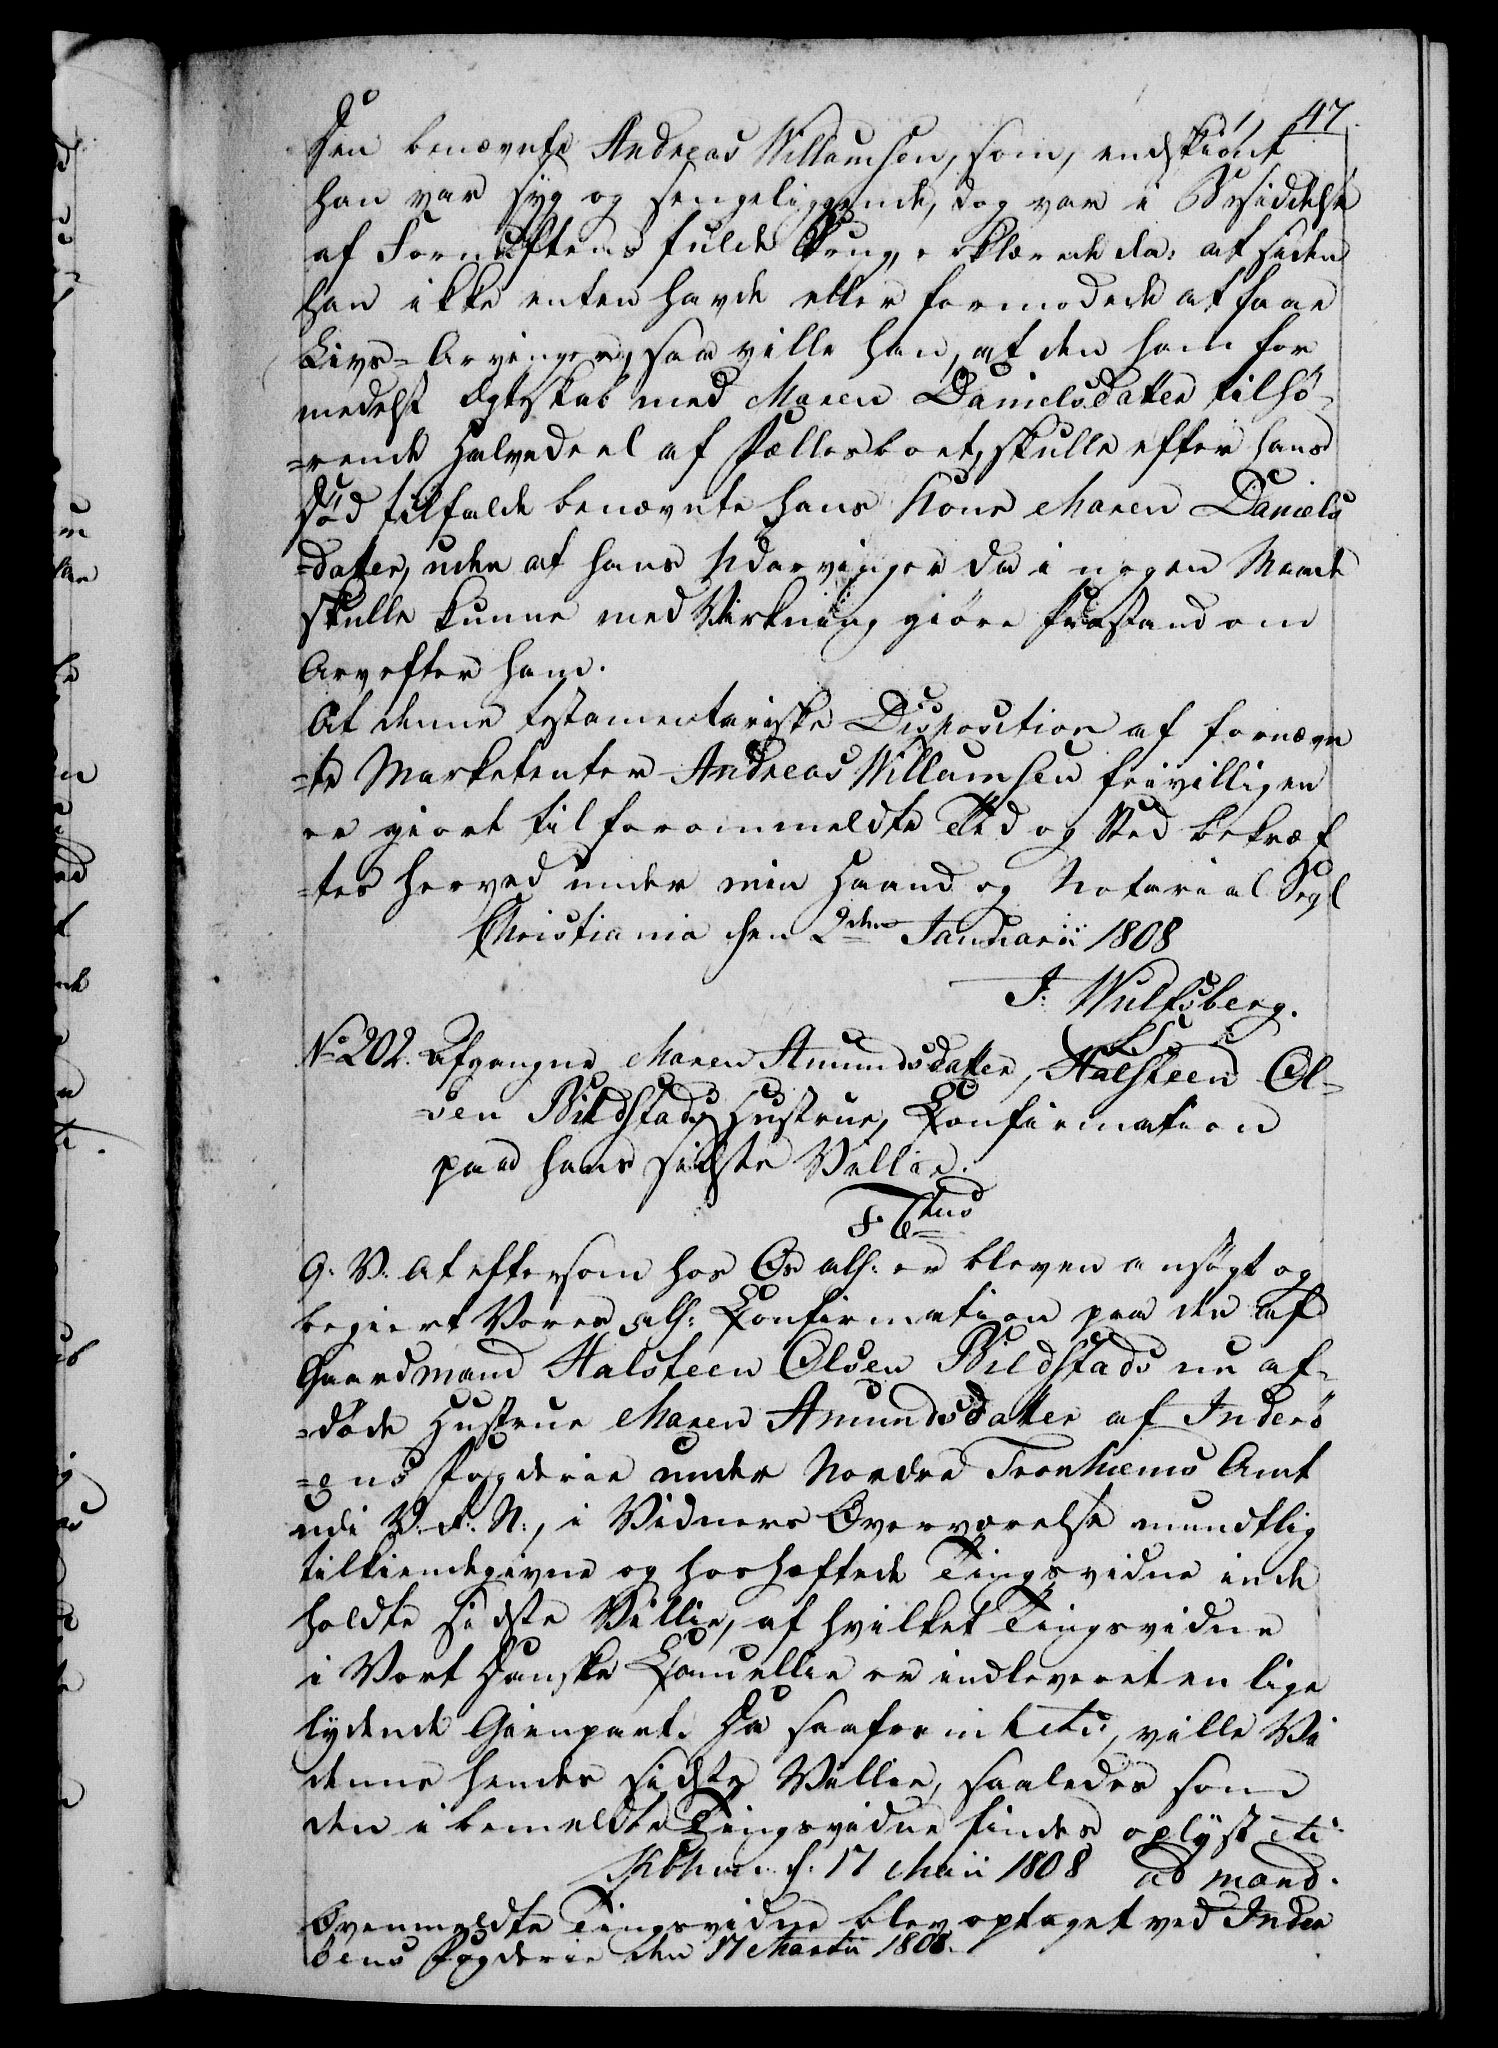 47.
Den benævnte Andreas Willumsen, som, endskiønt
han var syg og sengeliggende, dog var i Besiddelse
af Fornuftens fulde Brug, erklærede da: at siden
han ikke enten havde eller formodede at faae
Livs-Arvinger, saa ville han, at den ham for
medelst Ægteskab med Maren Danielsdatter tilhø-
=rende Halvedeel af Fællesboet, skulle efter hans
Død tilfalde benævnte hans Kone Maren Daniels
=datter, uden at hans Udarvinger da i nogen Maade
skulle kunne med Virkning giøre Paastand om
Arv efter ham.
At denne testamentariske Disposition af fornævn
=te Marketenter Andreas Willumsen frivilligen
er giort til forommeldte Tid og Sted bekræf
=tes herved under min Haand og Notarial Segl
Christiania den 2den Januarii 1808
J. Wulfsberg.
LS
No 202. Afgangne Maren Amundsdatter, Halsteen Ol-
sen Bildstads Hustrue, Confirmation
paa hans sidste Villie.
F. 6tus
G. V. At eftersom hos Os alh: er bleven ansøgt og
begiert Vores alh: Confirmation paa den af
Gaardmand Halsteen Olsen Bildstads nu af-
=døde Hustrue Maren Amundsdatter af Inderø
=ens Fogderie under Nordre Tronhiems Amt
udi V. R. N:, i Vidners Overværelse mundtlig
tilkiendegivne og hoshæftede Tingsvidne inde
holdte sidste Villie, af hvilket Tingsvidne
i Vort Danske Cancellie er indleveret en lige
lydende Gienpart. Da saafremt etc:, ville Vi
denne hendes sidste Villie, saaledes som
den i bemeldte Tingsvidne findes oplyst etc
Kbhavn d. 17 Maii 1808 ad mand.
Ovenmeldte Tingsvidne blev optaget ved Inder
øens Fogderie den 17 Martii 1808.